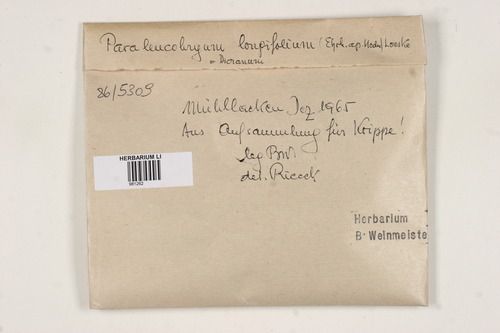 Paraleucobryum longifolium (Ehrh. ap. Hedw.) Loeske
= Dicranum
86/5309
Mühllacken, Dez 1965
Aus Aufsammlung für Krippe!
leg BW
det. Ricek
HERBARIUM LI
981262
Herbarium
B. Weinmeister